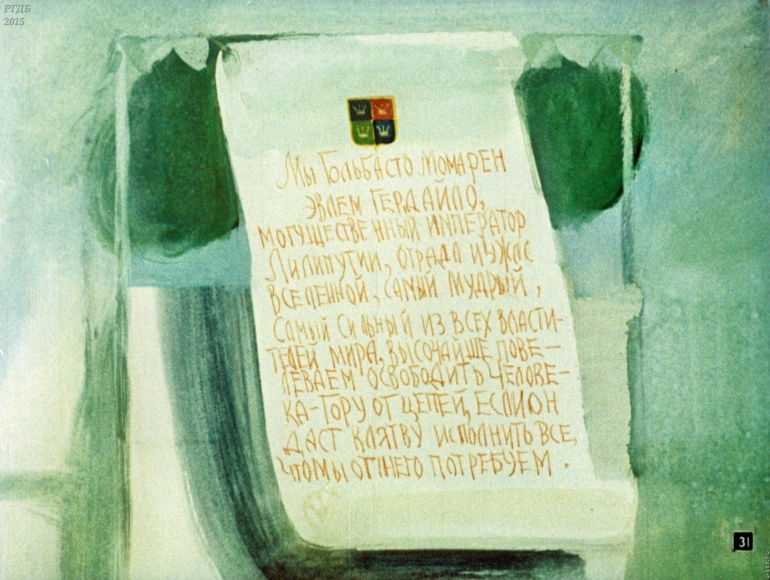 РГДБ
2015
Мы Гольбасто Момарен
Эвлем Гердайло,
могущественный император
Лилипутии, отрада и ужас
вселенной, самый мудрый,
самый сильный из всех власти-
телей мира. Высочайше пове-
леваем освободить Челове-
ка-Гору от цепей, если он
даст клятву исполнить все,
что мы от него потребуем.
31